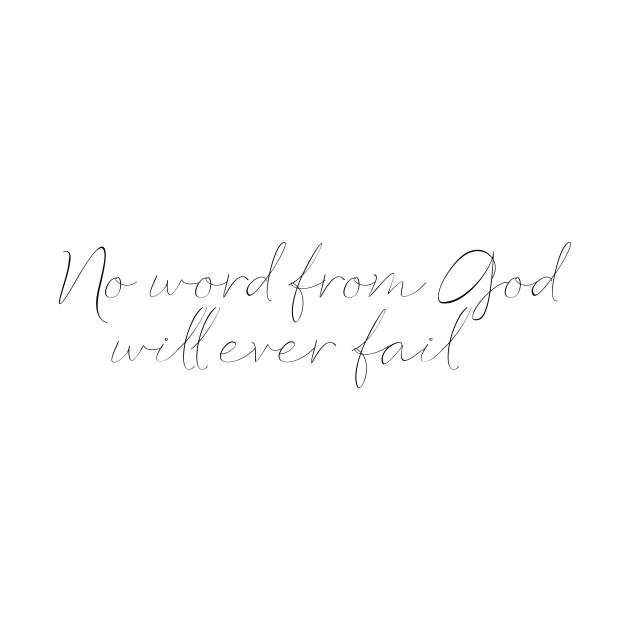 No word from God
will ever fail